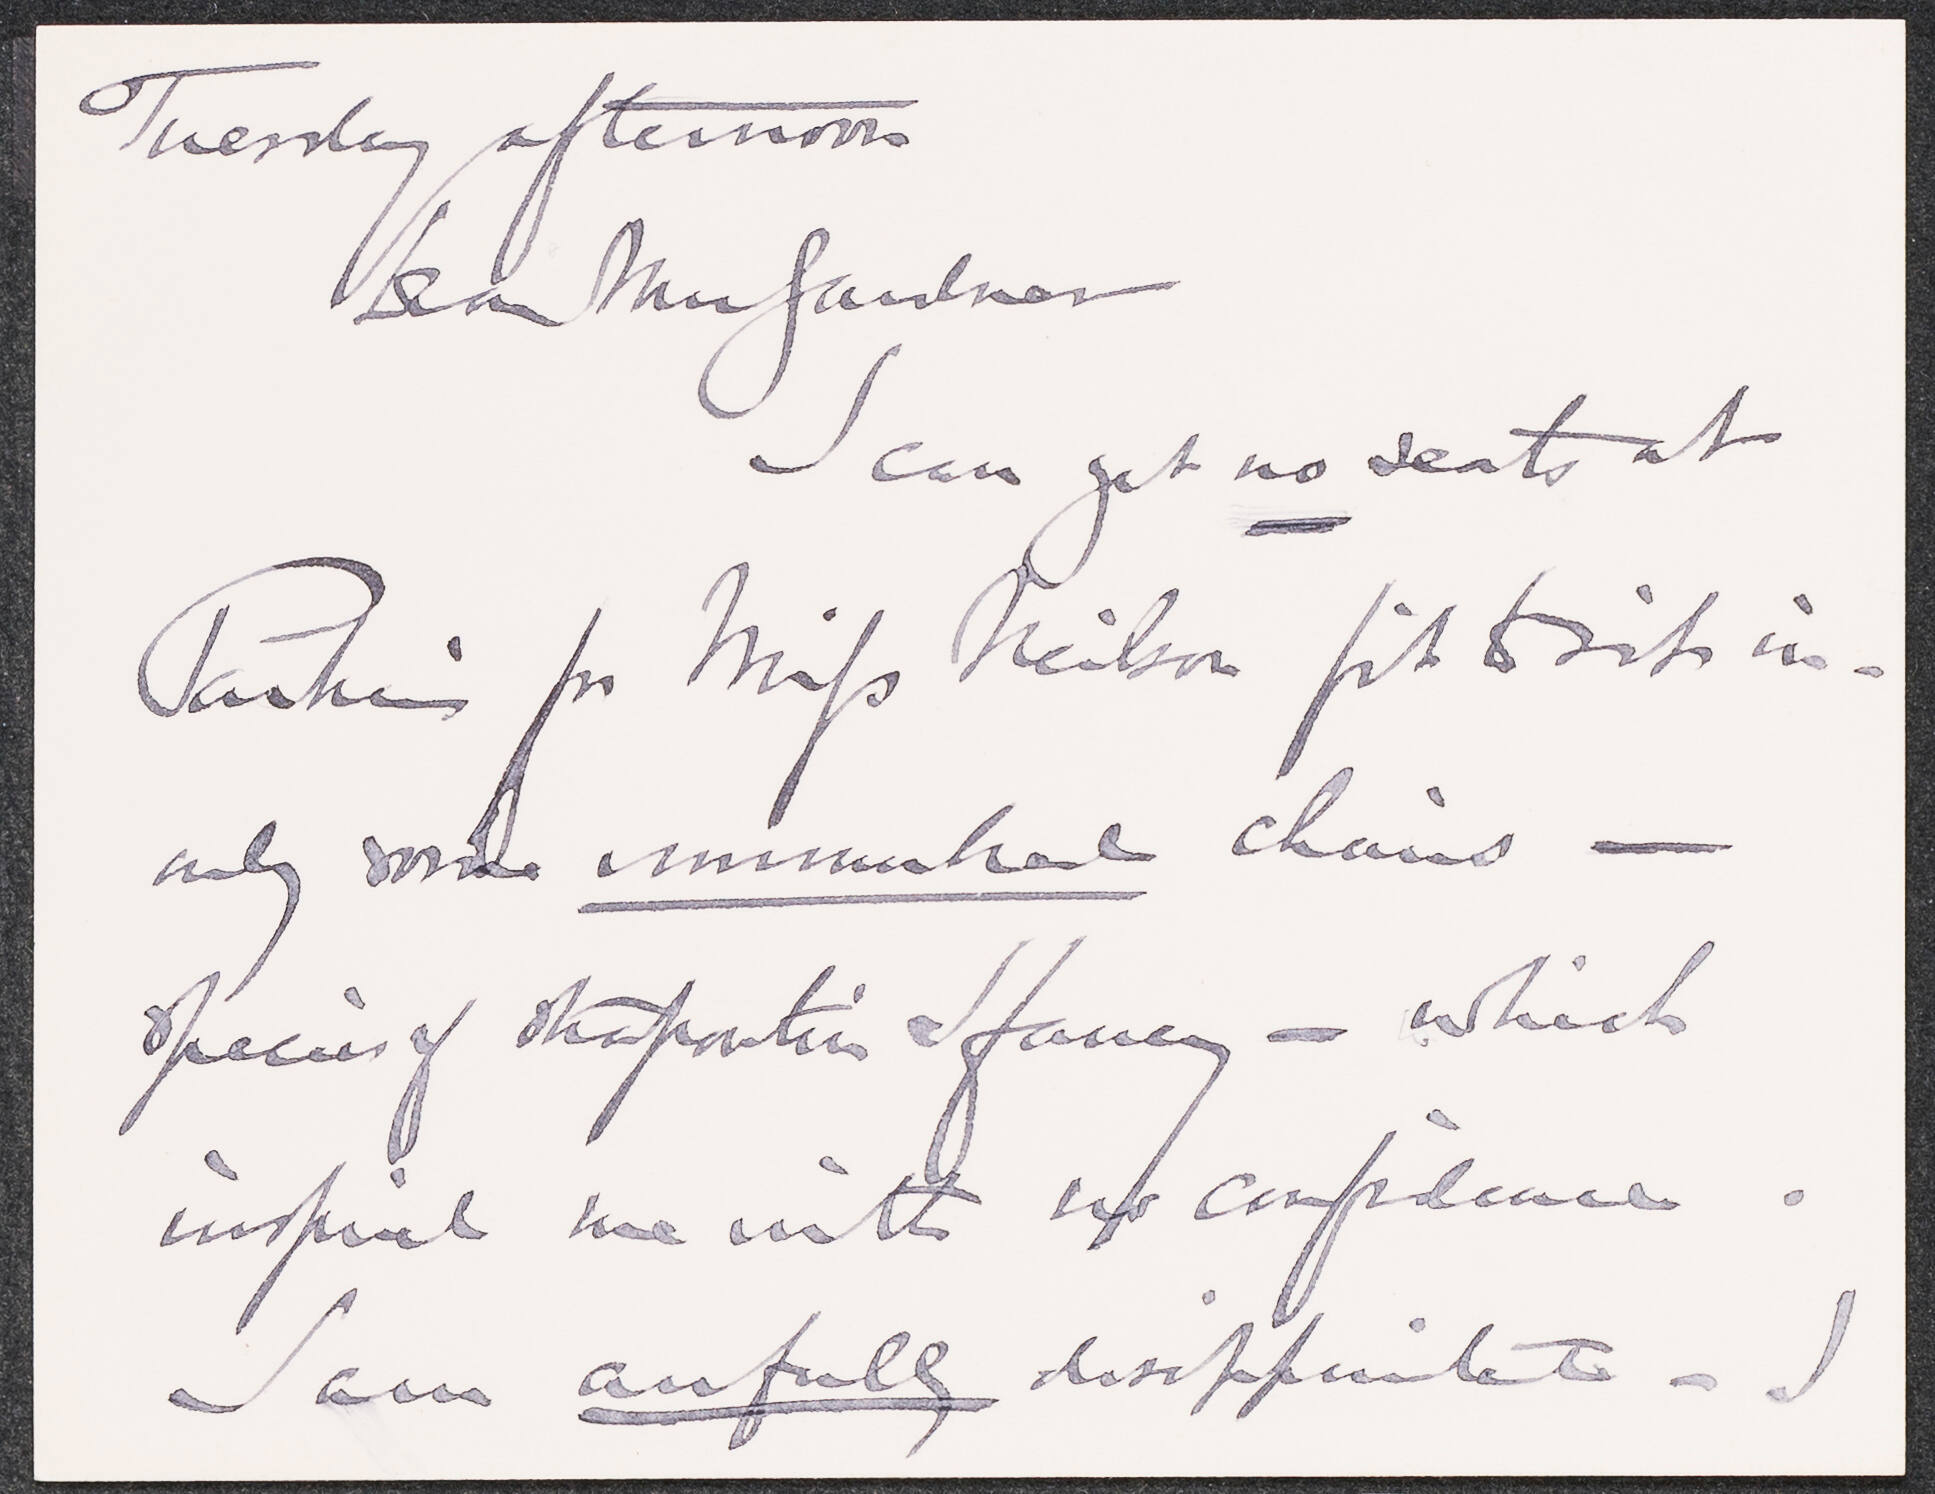 Tuesday afternoon
Dear Mrs Gardner
I can get no seats at
for Miss Neilson fit to sit in -
only some unnumbered chairs —
species of strapontin I fancy — which
inspire me with no confidence.
I am awfully - I